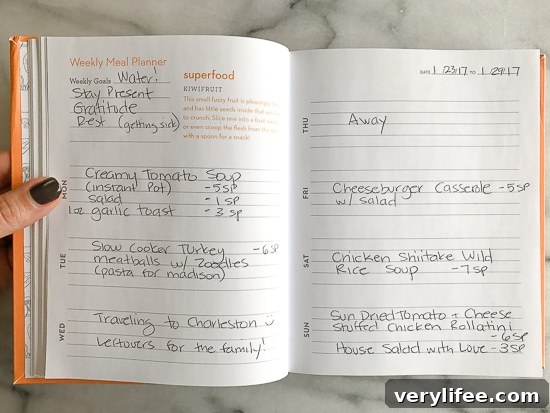 Weekly Meal Planner
Weekly Goals Water!
Stay Present
Gratitude
Rest (getting sick)
superfood
KIWIFRUIT
This small fuzzy fruit is pleasingly
and has little seeds inside that
to crunch. Slice one into a fruit
or even scoop the flesh from the
with a spoon for a snack!
MON
Creamy Tomato Soup
(instant Pot) -5sp
salad -1sp
1oz garlic toast -3sp
TUE
Slow Cooker Turkey -6sp
meatballs w/ Zoodles
(pasta for madison)
WED
Traveling to Charleston
Leftovers for the family!
DATE 1/23/17 TO 1/29/17
THU
Away
FRI
Cheeseburger Casserole -5sp
w/ salad
SAT
Chicken Shiitake Wild
Rice Soup -7sp
SUN
Sun Dried Tomato + Cheese
Stuffed Chicken Rollatini
-6sp
House Salad with Love -3sp
verylifee.com